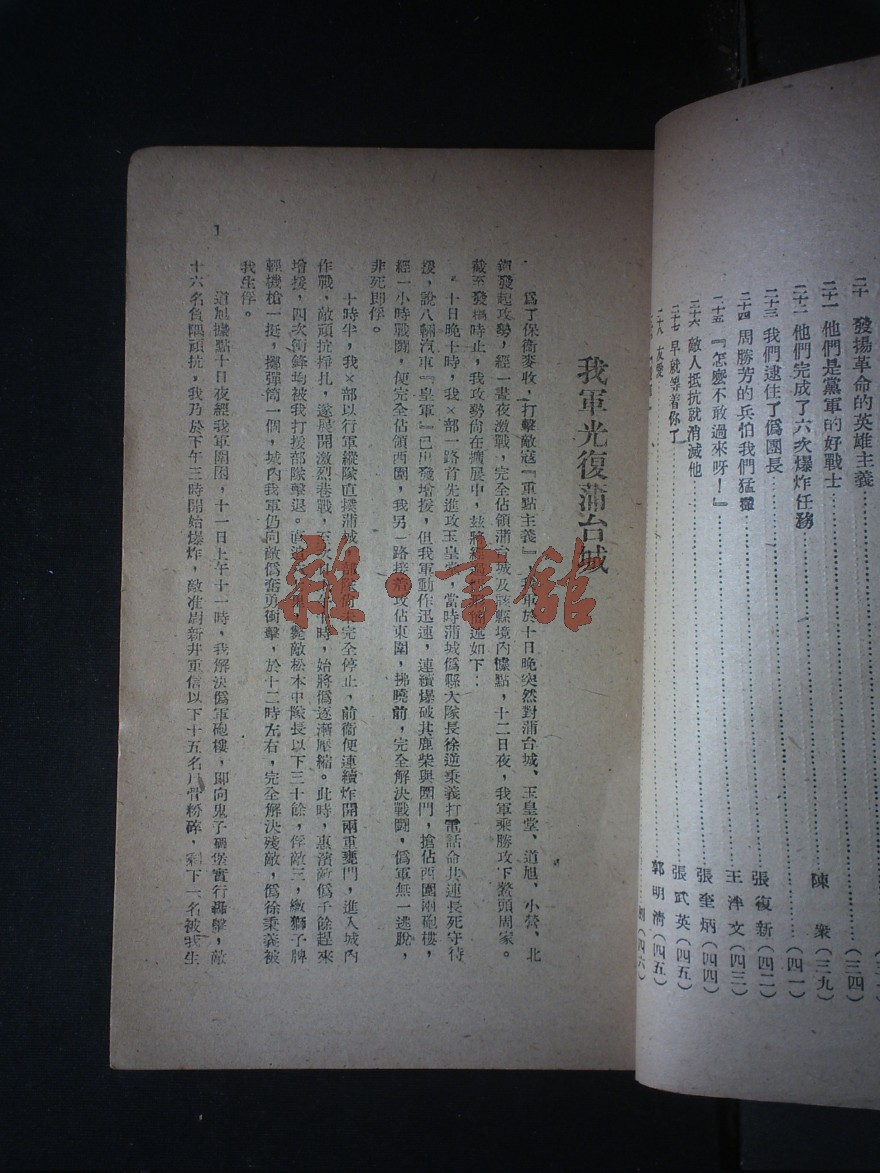 二十 發揚革命的英雄主義……(三四)
二十一 他們是黨軍的好戰士……陳 衆(三九)
二十二 他們完成了六次爆炸任務……(四一)
二十三 我們逮住了僞團長……張復新(四二)
二十四 周勝芳的兵怕我們猛攆……王泮文(四三)
二十五 『怎麽不敢過來呀!』……張奎炳(四四)
二十六 敵人抵抗就消滅他……張武英(四五)
二十七 早就等着你了……郭明清(四五)
二十八 友愛……(四六)
我軍光復蒲台城
爲了保衞麥收,打擊敵寇『重點主義』,我軍於十日晚突然對蒲台城、玉皇堂,道旭、小營、北
鎮發起攻勢,經一晝夜激戰,完全佔領蒲台城及該縣境內據點,十二日夜,我軍乘勝攻下鰲頭周家。
截至發稿時止,我攻勢尚在擴展中,茲將述如下:
十日晚十時,我×部一路首先進攻玉皇堂,當時蒲城僞縣大隊長徐逆秉義打電話命其連長死守待
援,說八輛汽車『皇軍』已出發增援,但我軍動作迅速,連續爆破其鹿柴與圍門,搶佔西圍兩砲樓,
經一小時戰鬪,便完全佔領西圍,我另一路接着攻佔東圍,拂曉前,完全解決戰鬪,僞軍無一逃脫,
非死即俘。
十時半,我×部以行軍縱隊直撲蒲城,部隊尚未完全停止,前衞便連續炸開兩重甕門,進入城內
作戰,敵頑抗掙扎,遂展開激烈巷戰,至次日上午十時,始將僞逐漸壓縮。此時,惠濱敵僞千餘趕來
增援,四次衝鋒均被我打援部隊擊退。斃敵松本中隊長以下三十餘,俘敵三,繳獅子牌
輕機槍一挺,擲彈筒一個,城內我軍仍向敵僞奮勇衝擊,於十二時左右,完全解決殘敵,僞徐秉義被
我生俘。
道旭據點十日夜經我軍圍困,十一日上午十一時,我解決僞軍砲樓,即向鬼子碉堡實行轟擊,敵
十六名負隅頑抗,我乃於下午三時開始爆炸,敵准尉新井重信以下十五名片骨粉碎,剩下一名被我生
1
雜·書館